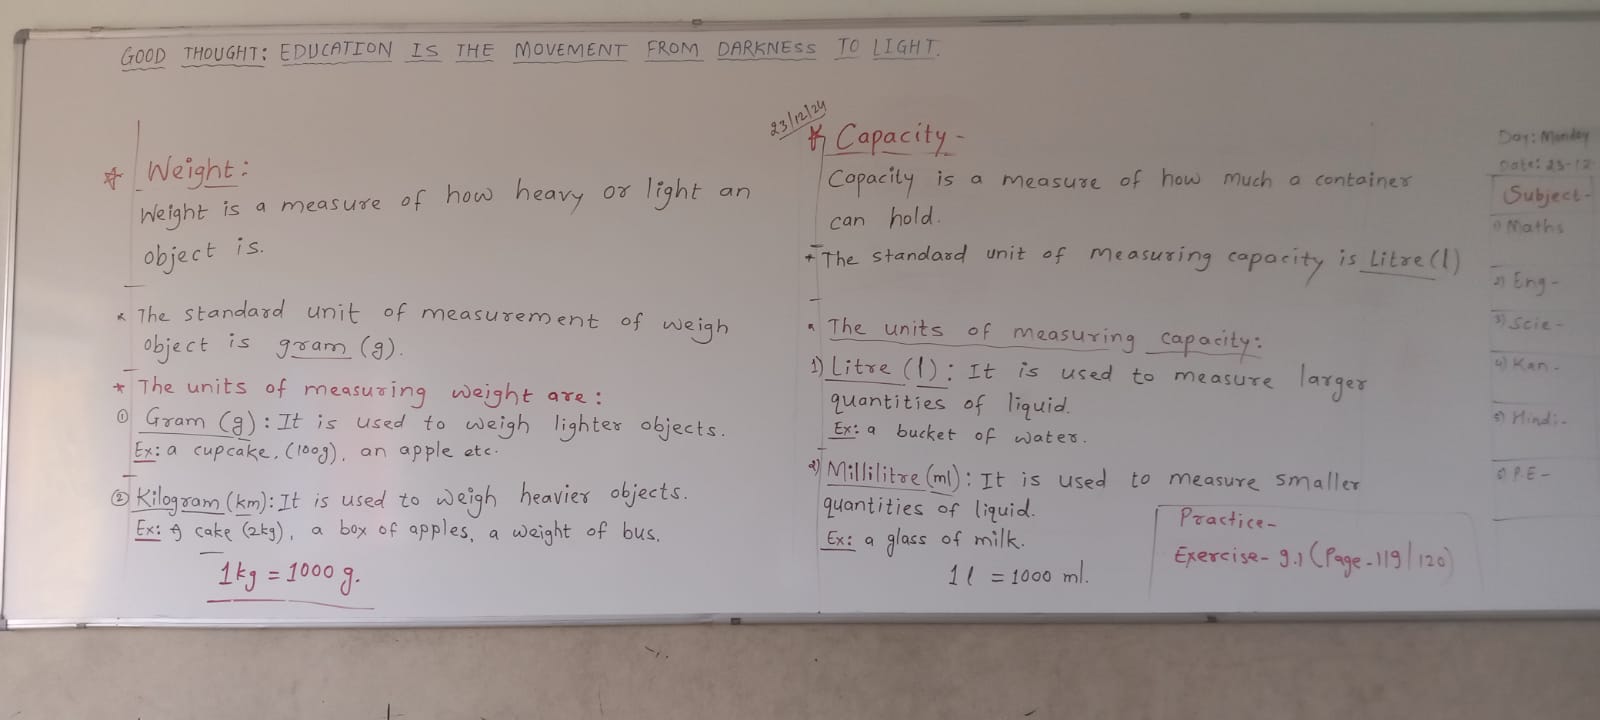 GOOD THOUGHT: EDUCATION IS THE MOVEMENT FROM DARKNESS TO LIGHT.
Weight:
Weight is a measure of how heavy or light an
object is.
* The standard unit of measurement of weigh
object is gram (g).
* The units of measuring weight are:
① Gram (g): It is used to weigh lighter objects.
Ex: a cupcake, (100g), an apple etc.
② Kilogram (km): It is used to weigh heavier objects.
Ex: A cake (2kg), a box of apples, a weight of bus.
1kg = 1000 g.
23/12/24
* Capacity -
Capacity is a measure of how much a container
can hold.
* The standard unit of measuring capacity is Litre (l)
* The units of measuring capacity:
1) Litre (l): It is used to measure larger
quantities of liquid.
Ex: a bucket of water.
2) Millilitre (ml): It is used to measure smaller
quantities of liquid.
Ex: a glass of milk.
1 l = 1000 ml.
Practice-
Exercise- 9.1 (Page-119/120)
Day: Monday
Date: 23-12
Subject-
1) Maths
2) Eng-
3) Scie-
4) Kan-
5) Hindi-
6) P.E-